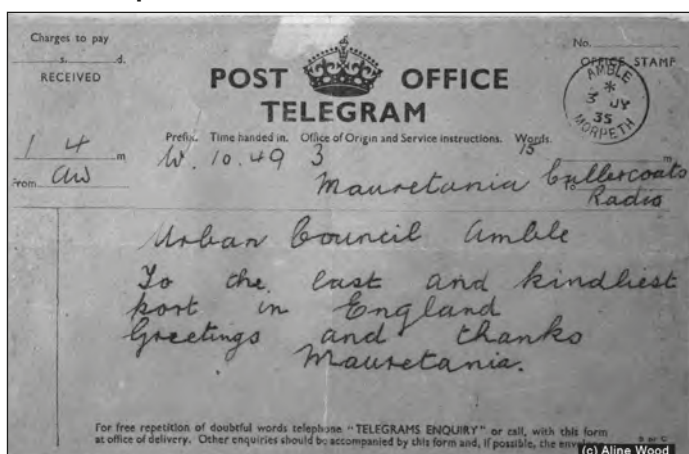 Charges to pay
s. d.
RECEIVED
POST OFFICE
TELEGRAM
No.
OFFICE STAMP
AMBLE
*
3 JY
35
MORPETH
Prefix. Time handed in. Office of Origin and Service instructions. Words.
1 4 m
W. 10.49 3 15 m
From aw
Mauretania Cullercoats
To
Radio
Urban Council Amble
To the last and kindliest
port in England
Greetings and thanks
Mauretania.
For free repetition of doubtful words telephone "TELEGRAMS ENQUIRY" or call, with this form
at office of delivery. Other enquiries should be accompanied by this form and, if possible, the envelope
B or C
(c) Aline Wood